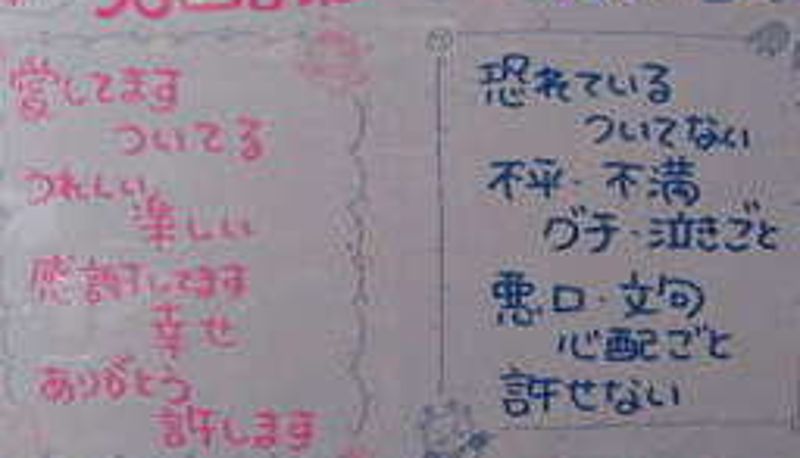 愛してます
ついてる
うれしい
楽しい
感謝してます
幸せ
ありがとう
許します
恐れている
ついてない
不平・不満
グチ・泣きごと
悪口・文句
心配ごと
許せない